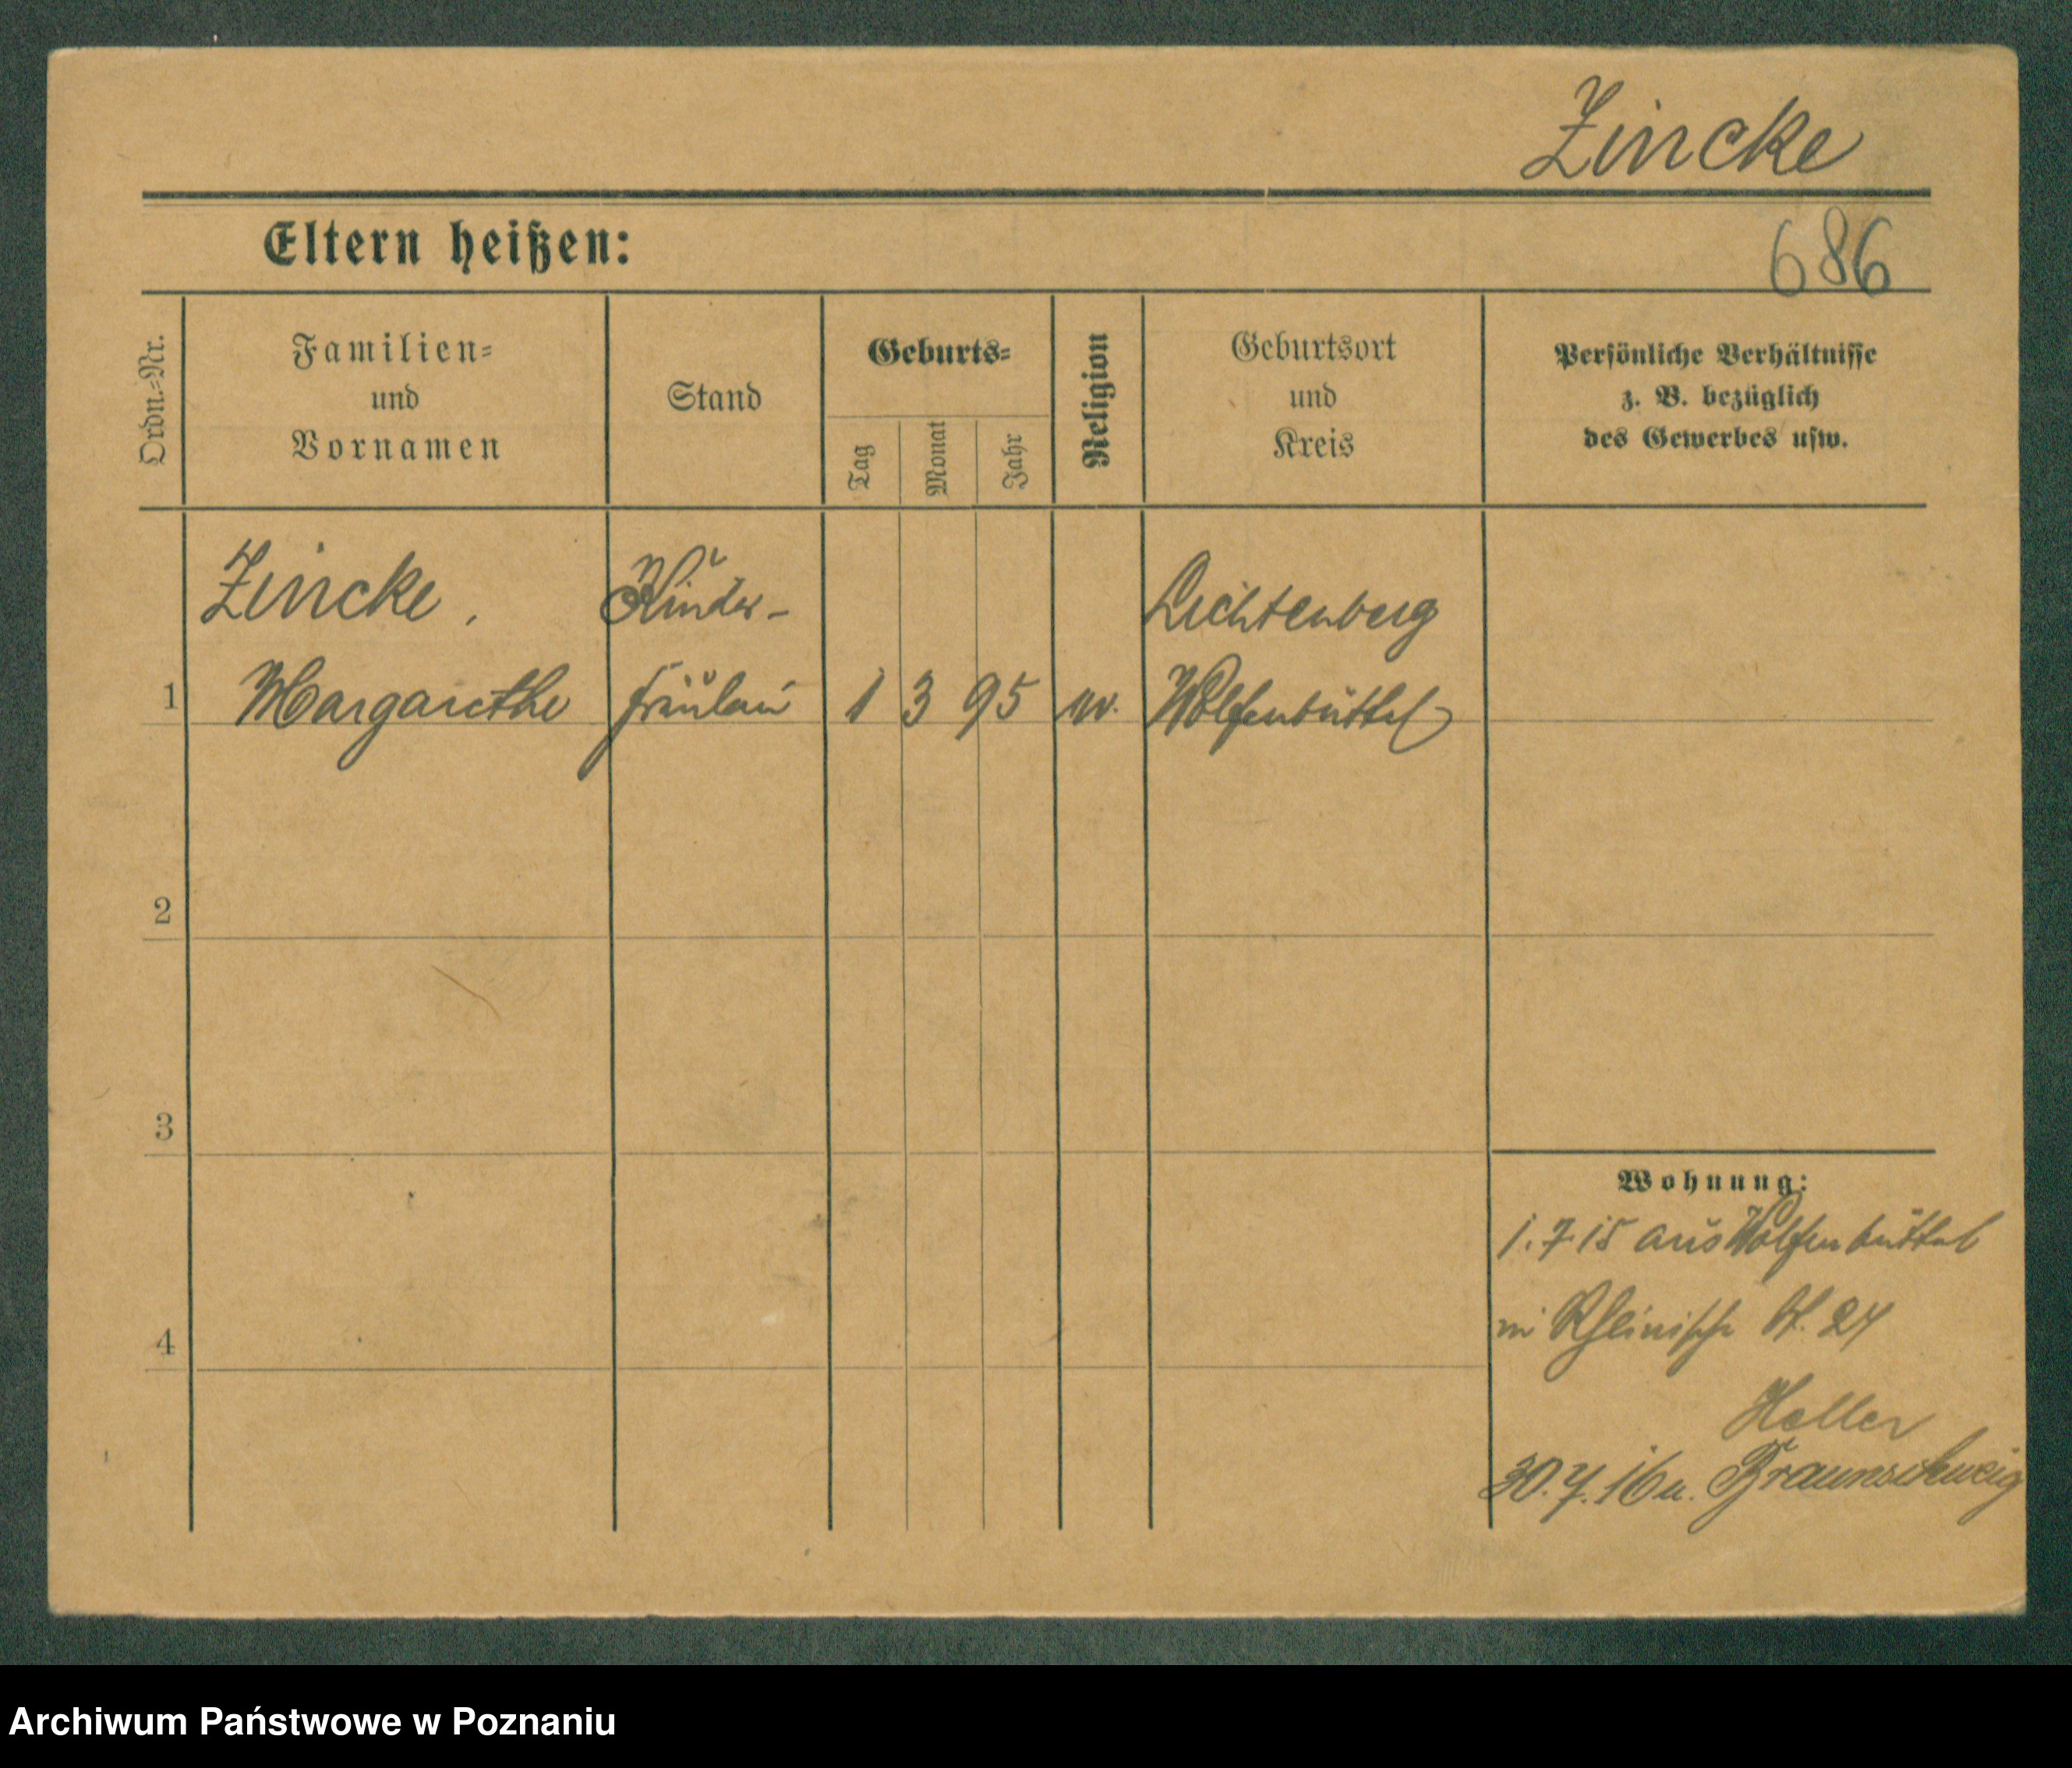 Zincke
Eltern heißen:
686
Ordn.=Nr.
Familien=
und
Vornamen
Stand
Geburts=
Tag
Monat
Jahr
Religion
Geburtsort
und
Kreis
Persönliche Verhältnisse
z. B. bezüglich
des Gewerbes usw.
Zincke, Kinder- Lichtenberg
1 Margarethe fräulein 1 3 95 Wolfenbüttel
2
3
4
Wohnung:
1.7.15 aus Wolfenbüttel
in Rheinische St. 24
Haller
30.7.16 n. Braunschweig
Archiwum Państwowe w Poznaniu